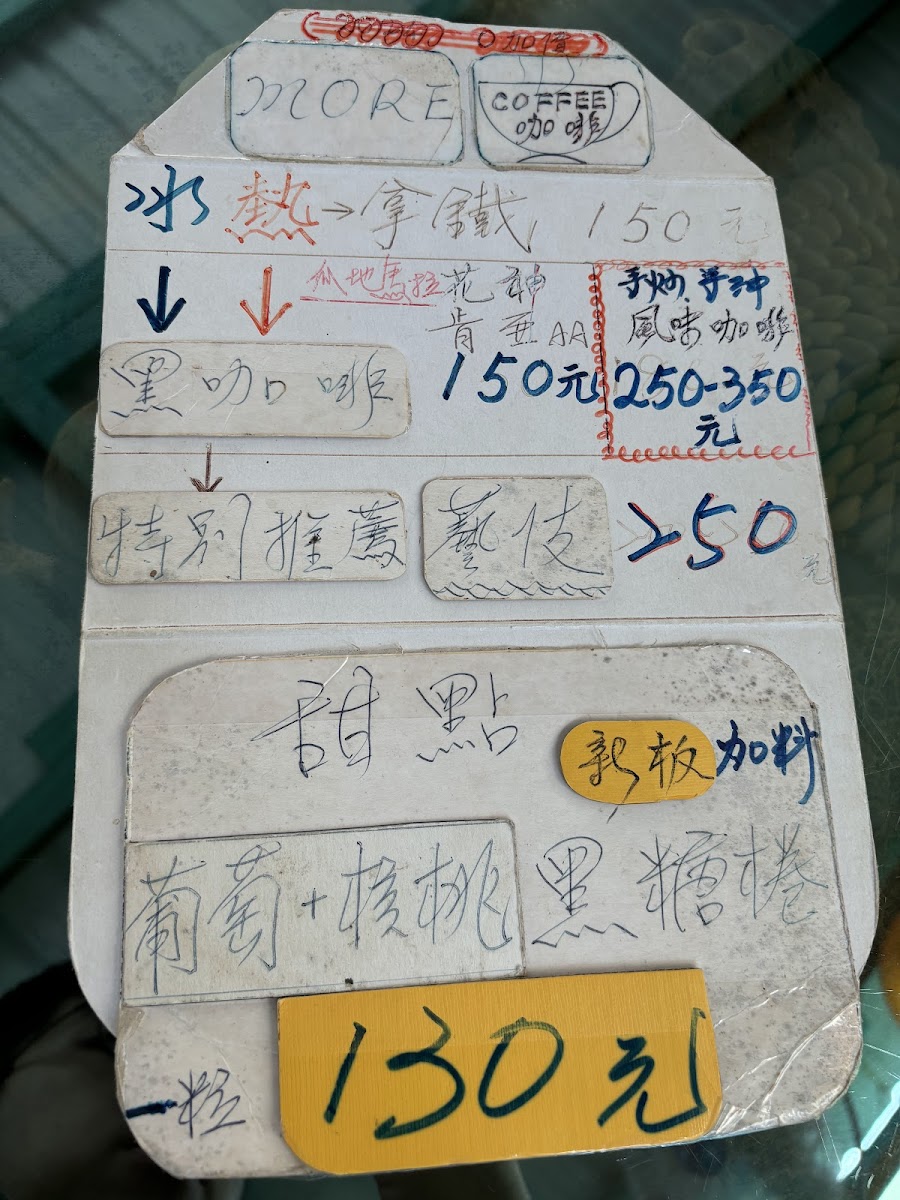 加倍
MORE
COFFEE
咖啡
冰 熱→拿鐵 150元
瓜地馬拉 花神
肯亞AA
150元
手炒手沖
風味咖啡
250-350
元
黑咖啡
特別推薦 藝伎 250元
甜點
新板 加料
葡萄+核桃 黑糖捲
一粒 130元